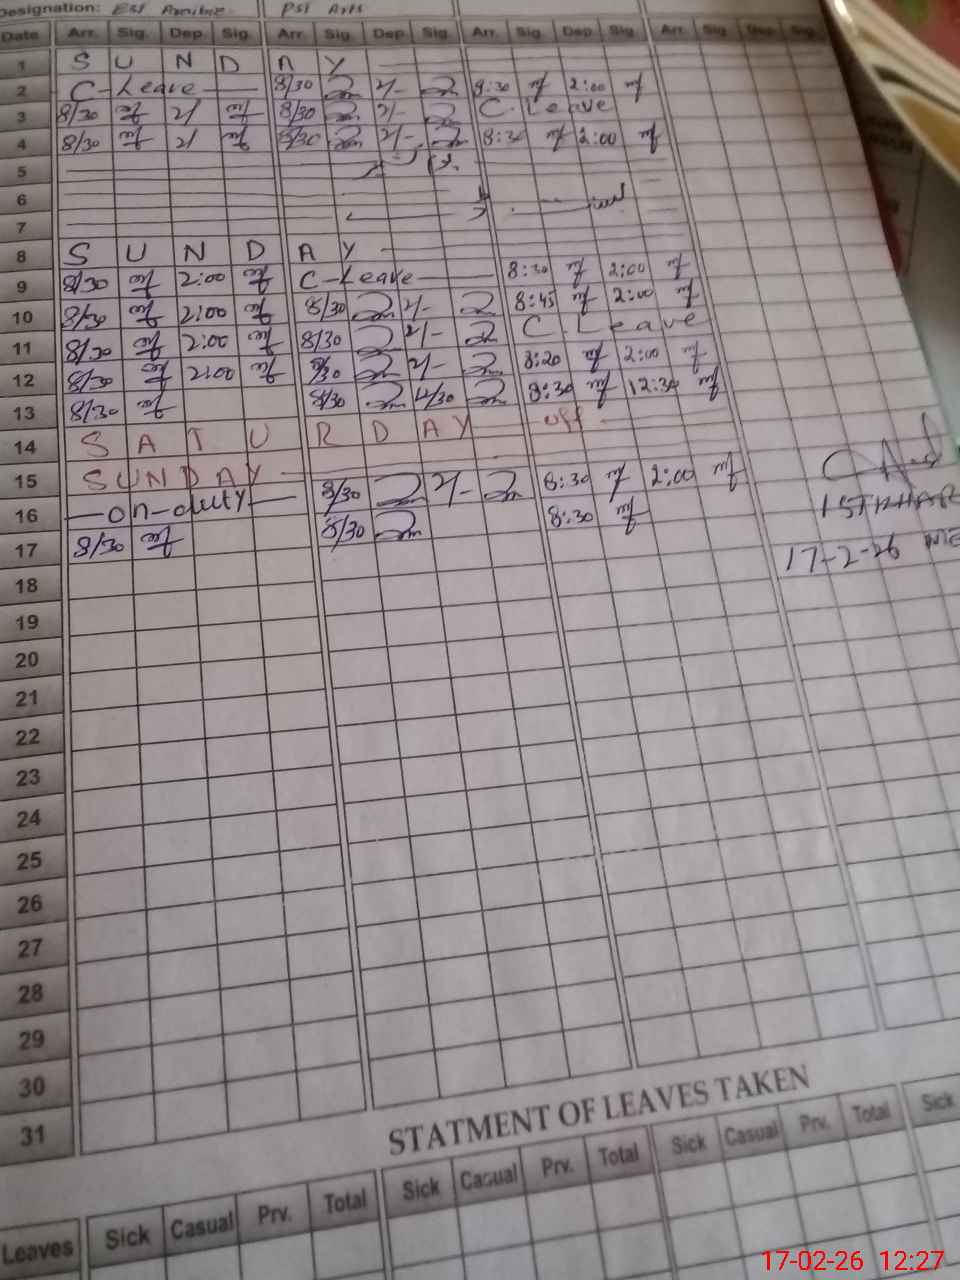 Designation: EST PST Arts
Date Arr. Sig. Dep. Sig. Arr. Sig. Dep. Sig. Arr. Sig. Dep. Sig. Arr. Sig. Dep. Sig.
1 S U N D A Y
2 C-Leave 8/30 2/- 8:30 2:00
3 8/30 2/ 8/30 2/- C. Leave
4 8/30 2/ 8/30 2/- 8:30 2:00
5
6
7
8 S U N D A Y
9 8/30 2:00 C-Leave 8:30 2:00
10 8/30 2:00 8/30 2/- 8:45 2:00
11 8/30 2:00 8/30 2/- C. Leave
12 8/30 2:00 8/30 2/- 8:20 2:00
13 8/30 8/30 12:30
14 S A T U R D A Y off
15 SUNDAY
16 on-duty 8/30 2/- 8:30 2:00
17 8/30 8/30 8:30
17-2-26
18
19
20
21
22
23
24
25
26
27
28
29
30
31
STATMENT OF LEAVES TAKEN
Leaves Sick Casual Prv. Total Sick Casual Prv. Total Sick Casual Prv. Total Sick
17-02-26 12:27